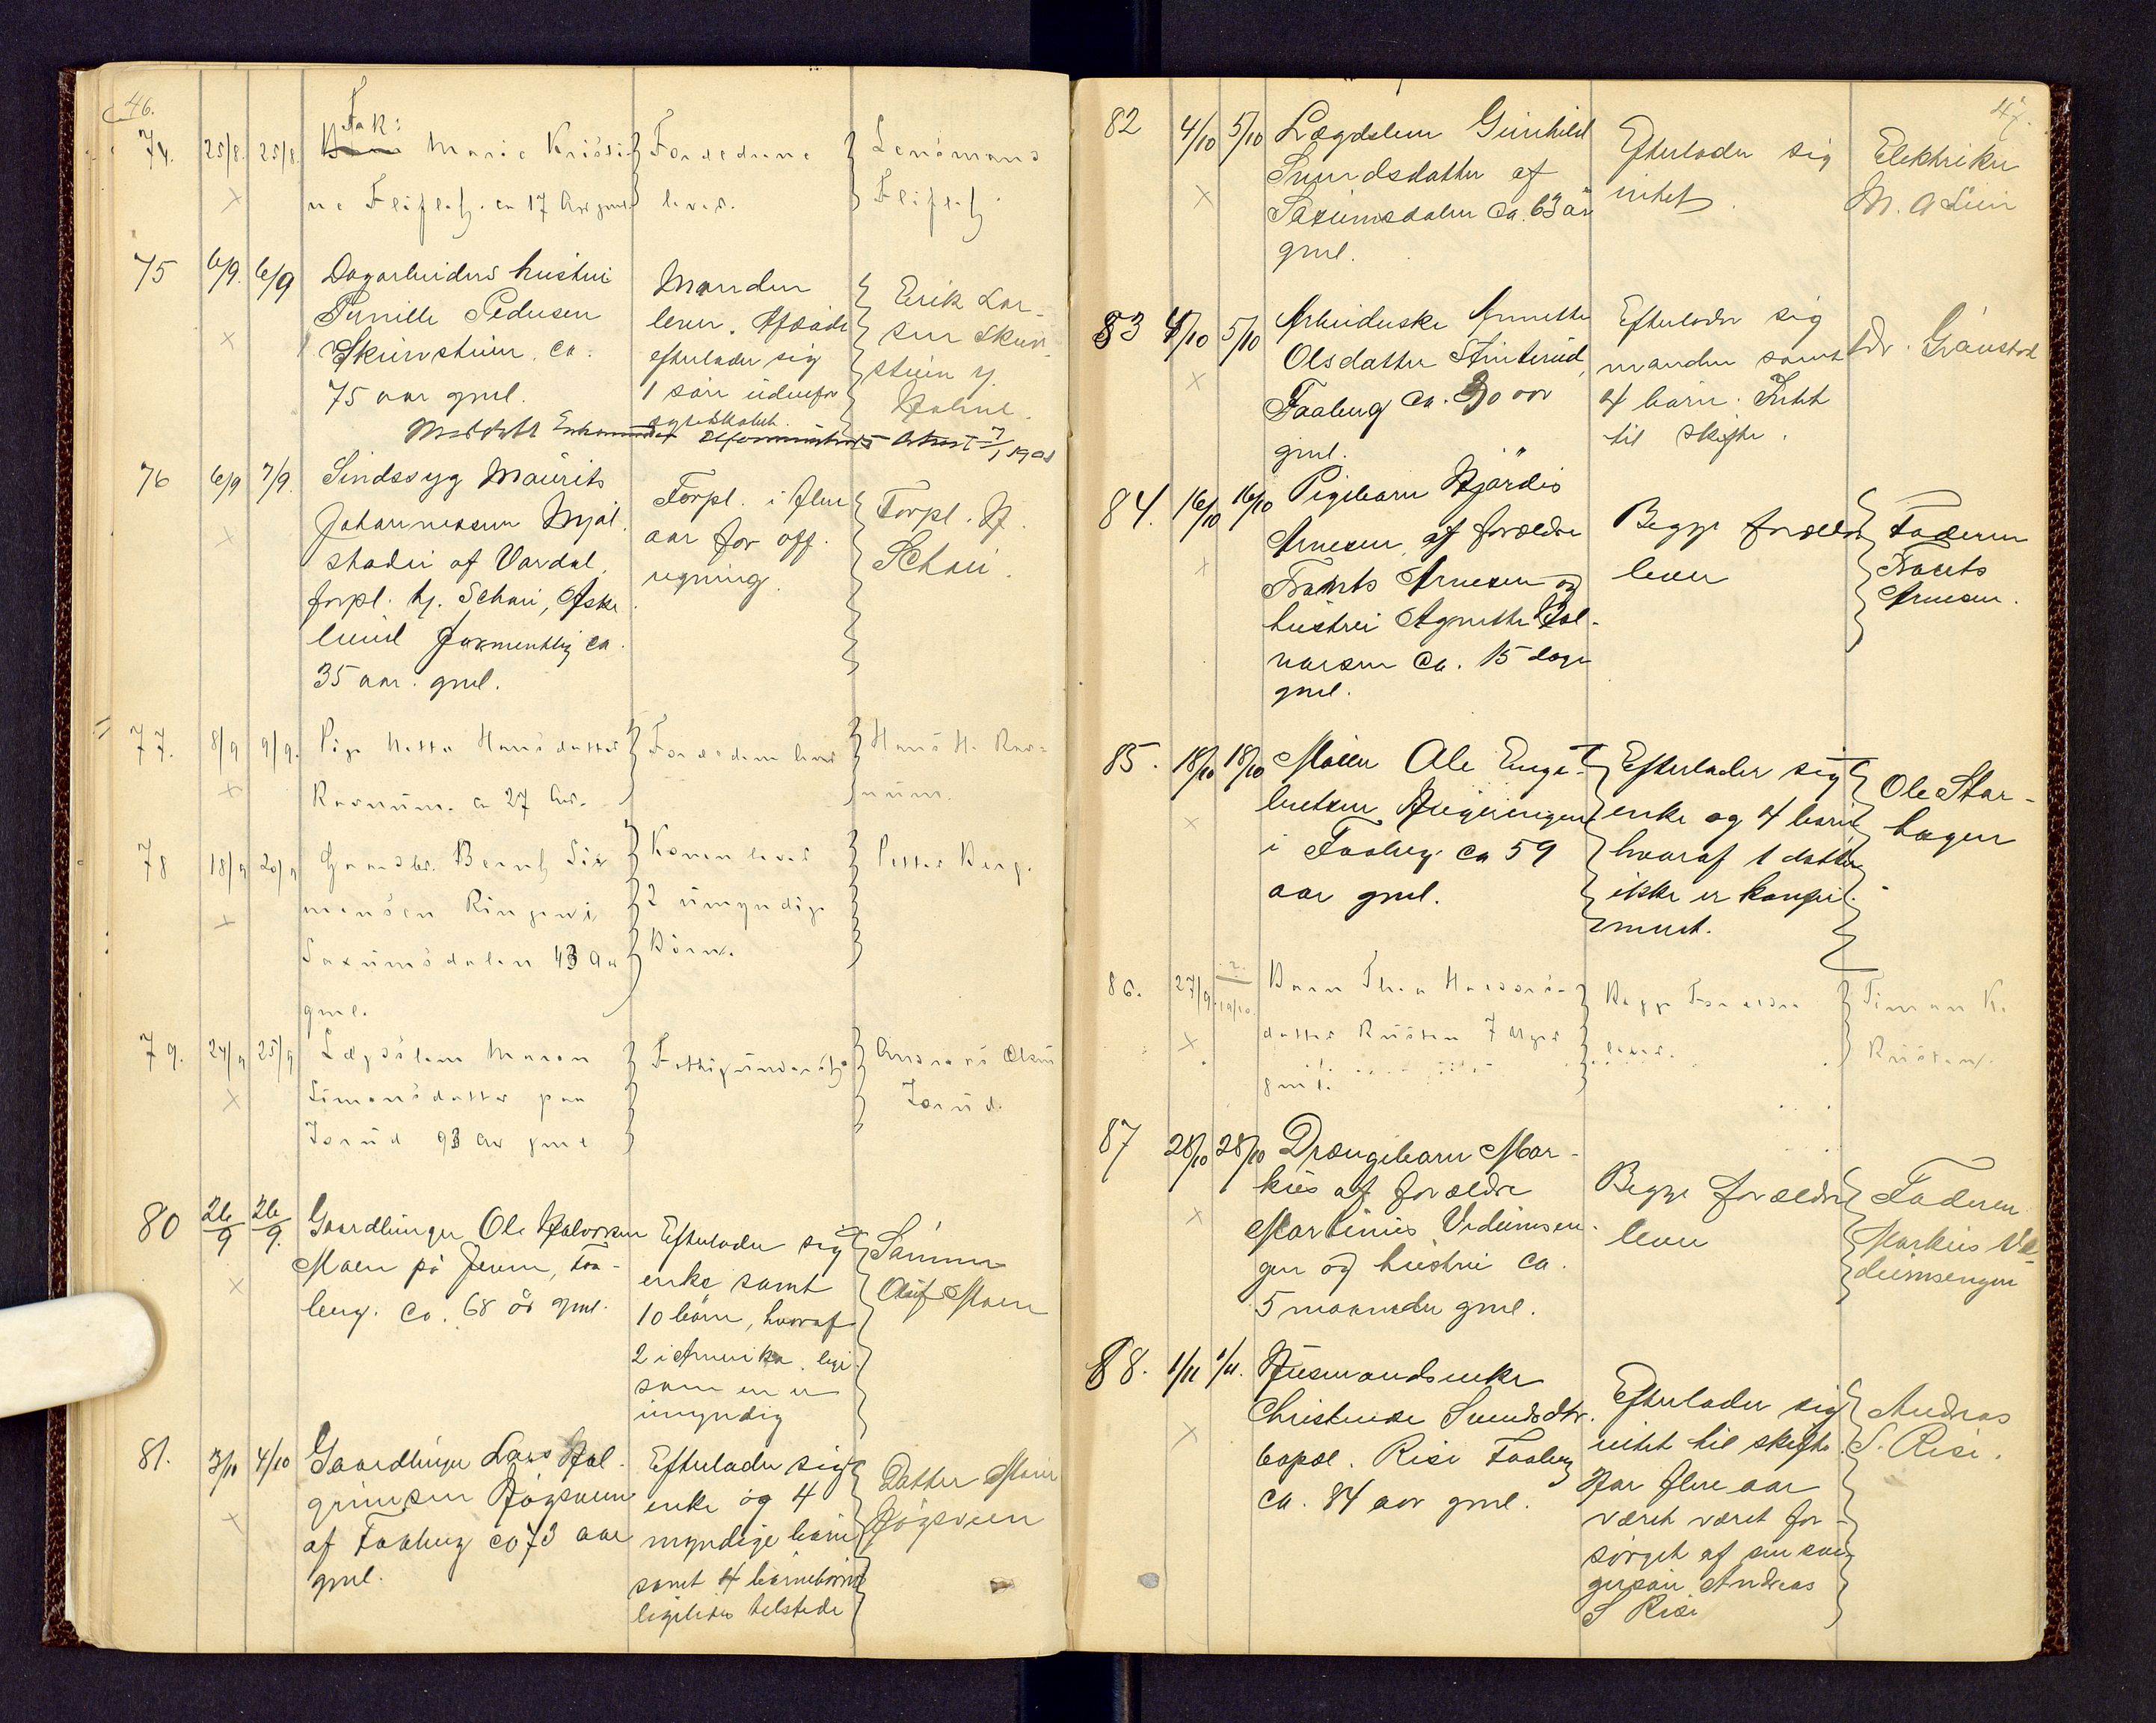 46.
74. 25/8. 25/8. Frk: Marie Kristi
ne Fliflet. ca 17 Aar gml.
Forældrene
lever.
Lensmand
Fliflet
75 6/9. 6/9 Dagarbeiders hustru
Pernille Pedersen
Skurvstuen. ca.
75 aar gml.
Manden
lever. Afdøde
efterlader sig
1 søn udenfor
ægteskabet.
Erik Lar-
sen Skurv-
stuen
Meddelt 1901
76 6/9 7/9. Sindssyg Maurits
Johannessen Mjøl
staden af Vardal.
forpl. hj. Schau,
formentlig ca.
35 aar. gml.
Forpl. i flere
aar for off.
regning.
Forpl. H.
Schau.
77. 8/9 9/9. Pige Mette Hansdatter
Ravnum. ca 27 Aar.
Forældrene lever
Hans H. Rav-
num.
78 18/9 20/9 Gaardbr. Bernt Si
mensen Ringen i
Saxumsdalen 43 Aar
gml.
Konen lever
2 umyndige
Børn.
Petter Berg.
79. 24/9 25/9 Lægdslem Maren
Simensdatter paa
Jorud 93 Aar gml
Fattigunderst.
Andreas Olsen
Jorud.
80 26/9 26/9. Gaardbruger Ole Halvorsen
Moen på Jevne, Faa-
berg. Ca. 68 år gml.
Efterlader sig
enke samt
10 børn, hvoraf
2 i Amerika. lige
som en er
umyndig
Sønnen
Oluf Moen
81. 3/10 4/10 Gaardbruger Lars Hal-
grimsen Høgsveen
af Faaberg ca 73 aar
gml.
Efterlader sig
enke og 4
myndige børn
samt 4 børnebørn
ligeledes telstede
Datter Marie
Høgsveen
47.
82 4/10 5/10 Lægdslem Gunhild
Simensdatter af
Saxumsdalen ca. 63 år
gml.
Efterlader sig
intet.
Elektriker
M. A Lien
83 4/10 5/10 Arbeiderske Annette
Olsdatter Stinterud,
Faaberg ca. 30 aar
gml.
Efterlader sig
manden samt
4 børn. Intet
til skifte.
Dr. Grønstad
84. 16/10 16/10 Pigebarn Hjørdis
Arnesen, af forældre
Frants Arnesen og
hustru Agnethe Hal-
varsen ca. 15 dage
gml.
Begge forældre
lever
Faderen
Frants
Arnesen.
85. 18/10 18/10 Maler Ole Enge-
bretsen Rugsvingen
i Faaberg ca 59
aar gml.
Efterlader sig
enke og 4 børn
hvoraf 1 datter
ikke er konfir-
meret.
Ole Stor-
hagen
86. 27/9 19/10. Barn Thea Haavards-
datter Rusten 7 Uger
gml.
Begge Forældre
lever.
Simen K.
Rusten.
87 28/10 28/10 Drængebarn Mar-
kus af forældre
Martinus Vedumsen-
gen og hustru ca.
5 maaneder gml.
Begge forældre
lever
Faderen
Markus Ve-
dumsengen
88. 1/11 1/11. Husmandsenke
Christense Svendsdtr.
bopæl. Rise Faaberg
ca. 84 aar gml.
Efterlader sig
intet til skifte.
Har flere aar
været været for-
sørget af sin svi-
gersøn Andreas
S Rise
Andreas
S. Rise.